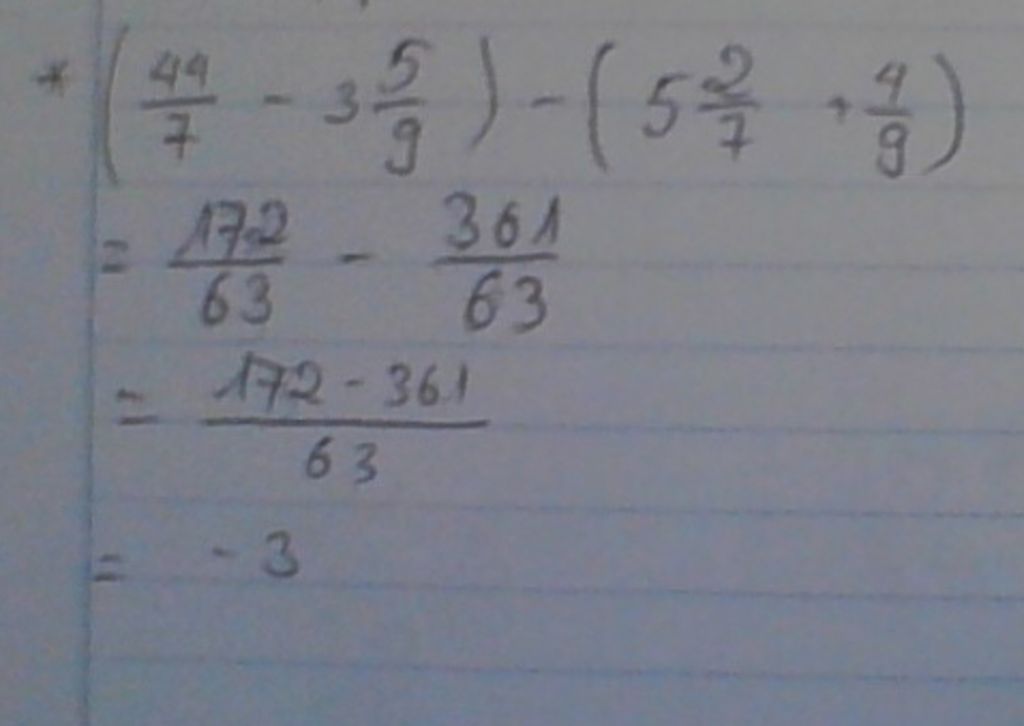 * (44/7 - 3 5/9) - (5 2/7 + 4/9)
= 172/63 - 361/63
= (172 - 361)/63
= - 3